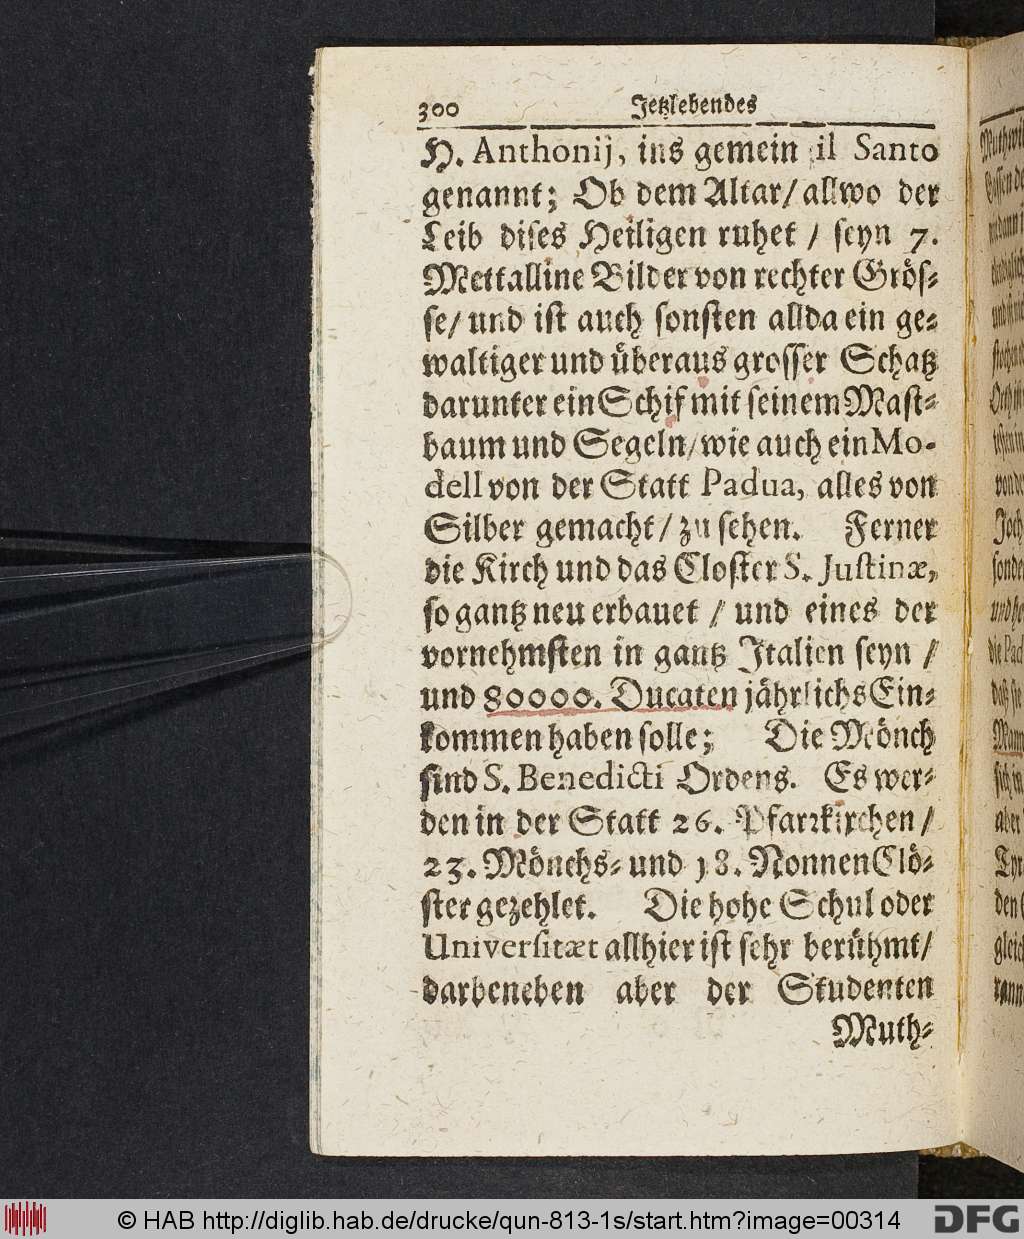 300 Jetzlebendes
H. Anthonij, ins gemein il Santo
genannt; Ob dem Altar/ allwo der
Leib dises Heiligen ruhet / seyn 7.
Mettalline Bilder von rechter Grös-
se/ und ist auch sonsten allda ein ge-
waltiger und überaus grosser Schatz
darunter ein Schif mit seinem Mast-
baum und Segeln/ wie auch ein Mo-
dell von der Statt Padua, alles von
Silber gemacht/ zu sehen. Ferner
die Kirch und das Closter S. Justinæ,
so gantz neu erbauet / und eines der
vornehmsten in gantz Italien seyn /
und 80000. Ducaten jährlichs Ein-
kommen haben solle; Die Mönch
sind S. Benedicti Ordens. Es wer-
den in der Statt 26. Pfarrkirchen /
23. Mönchs- und 18. Nonnen Clö-
ster gezehlet. Die hohe Schul oder
Universitæt allhier ist sehr berühmt/
darbeneben aber der Studenten
Muth-
© HAB http://diglib.hab.de/drucke/qun-813-1s/start.htm?image=00314
DFG